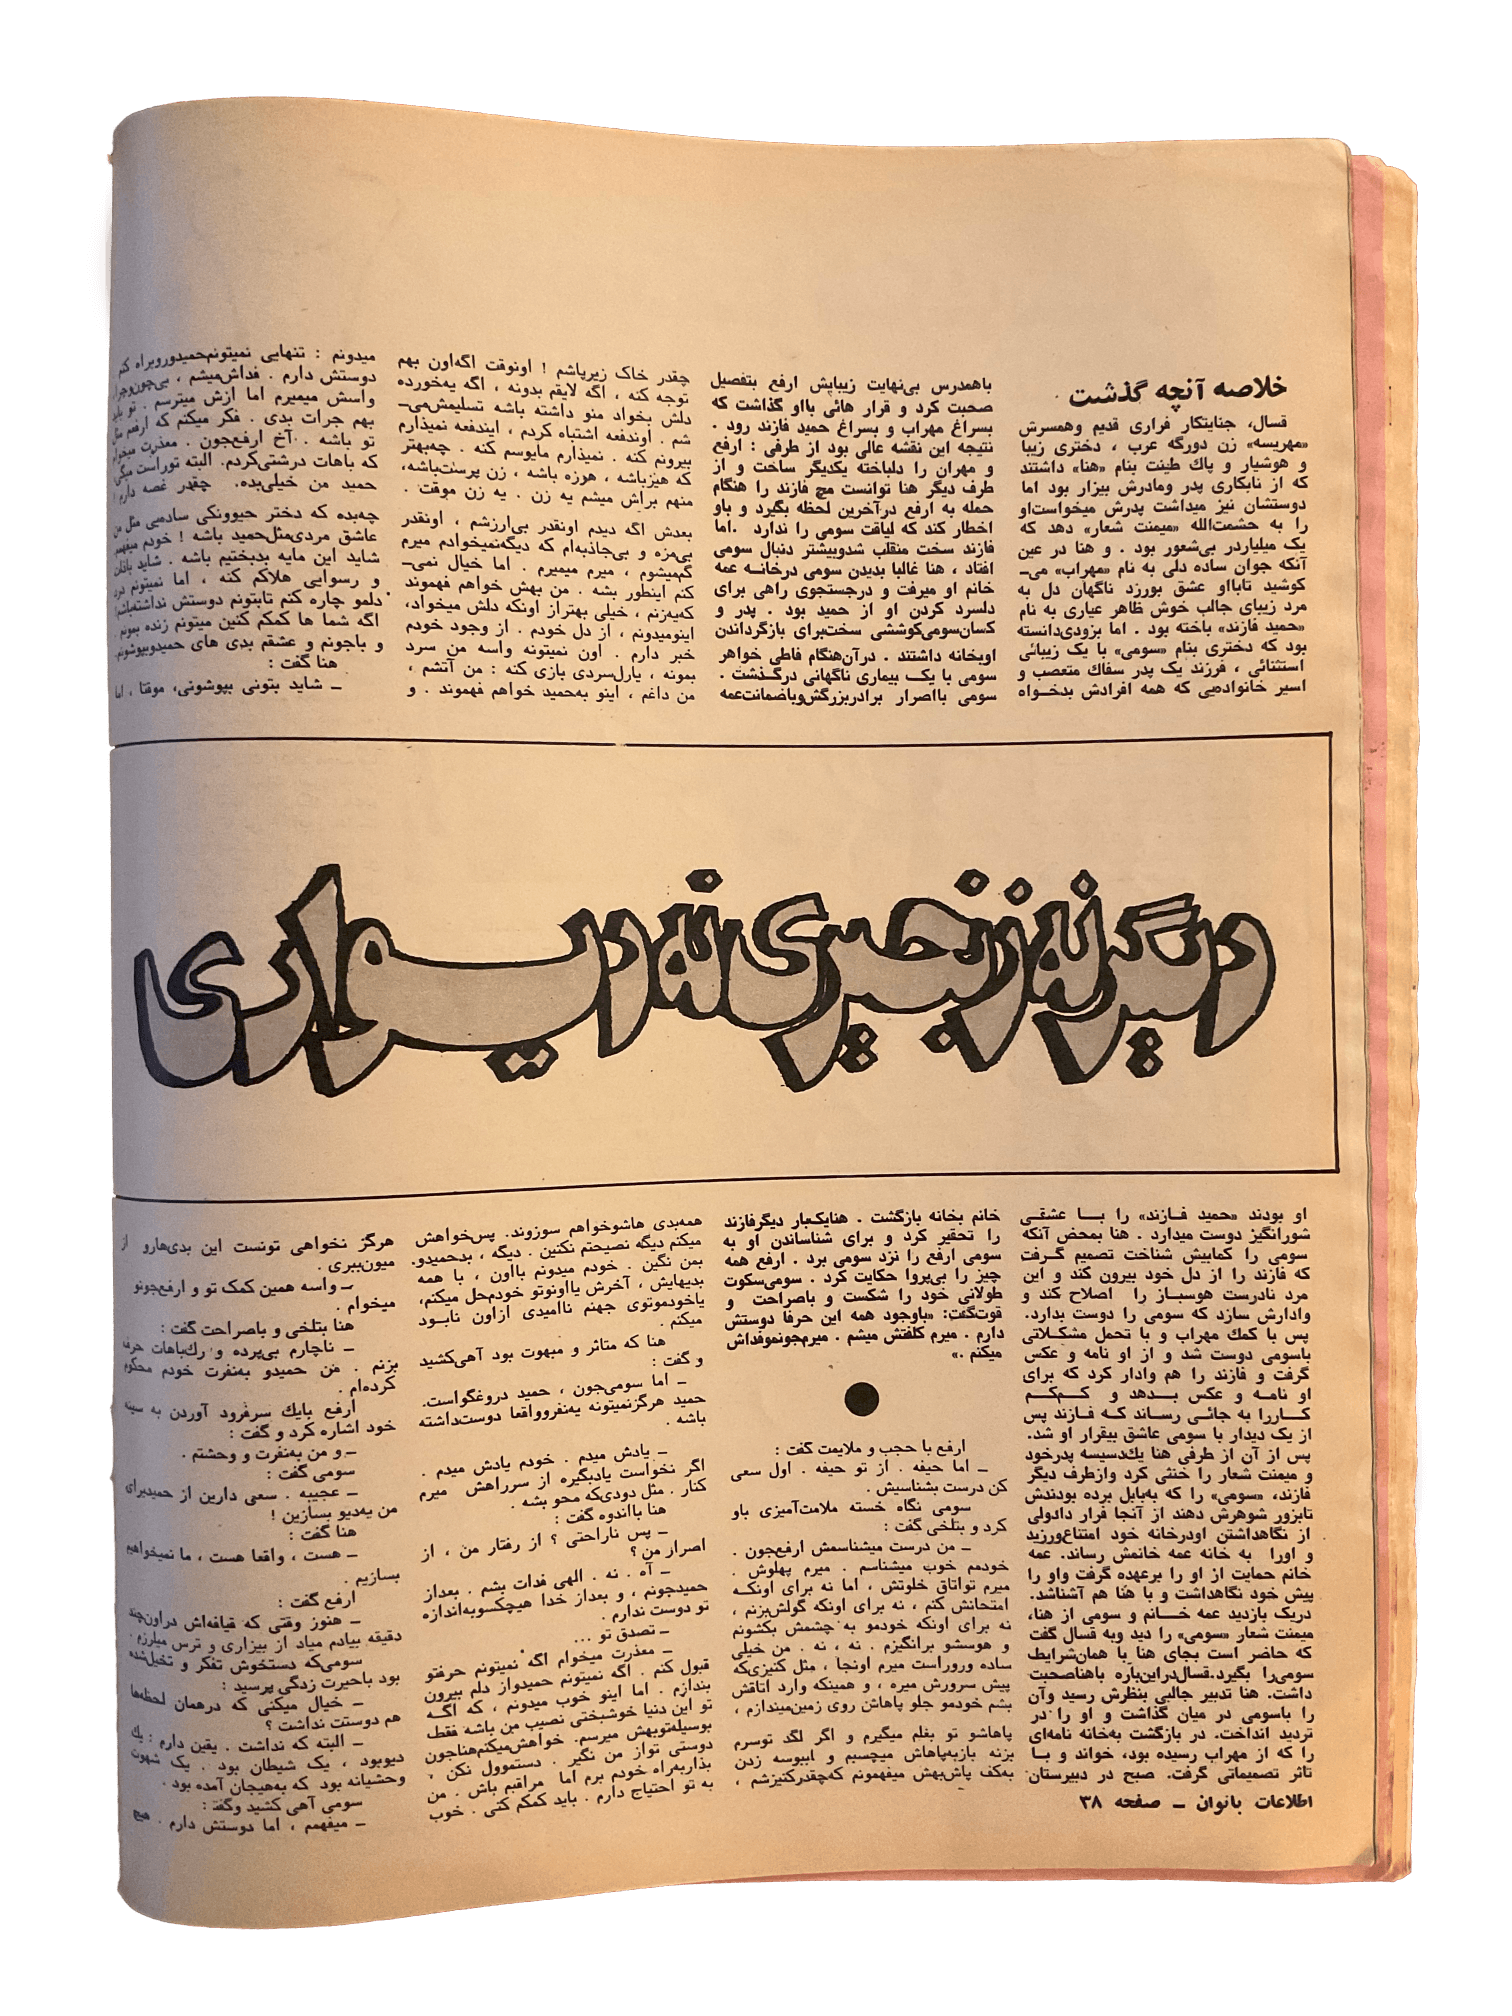 دیگر نه زنجیری نه دیواری
خلاصه آنچه گذشت
قسال، جنایتکار فراری قدیم وهمسرش
«مهریسه» زن دورگه عرب ، دختری زیبا
و هوشیار و پاك طینت بنام «هنا» داشتند
که از نابکاری پدر ومادرش بیزار بود اما
دوستشان نیز میداشت پدرش میخواست‌او
را به حشمت‌الله «میمنت شعار» دهد که
یک میلیاردر بی‌شعور بود . و هنا در عین
آنکه جوان ساده دلی به نام «مهراب» می‌ـ
کوشید تابااو عشق بورزد ناگهان دل به
مرد زیبای جالب خوش ظاهر عیاری به نام
«حمید فازند» باخته بود . اما بزودی‌دانسته
بود که دختری بنام «سومی» با یک زیبائی
استثنائی ، فرزند یک پدر سفاك متعصب و
اسیر خانواده‌یی که همه افرادش بدخواه
او بودند «حمید فـازند» را بـا عشقی
شورانگیز دوست میدارد . هنا بمحض آنکه
سومی را کمابیش شناخت تصمیم گـرفت
که فازند را از دل خود بیرون کند و این
مرد نادرست هوسبـاز را اصلاح کند و
وادارش سازد که سومی را دوست بدارد.
پس با کمك مهراب و با تحمل مشکـلاتی
باسومی دوست شد و از او نامه و عکس
گرفت و فازند را هم وادار کرد که برای
او نامـه و عکس بـدهد و کـم‌کم
کـاررا به جائی رساند کـه فـازند پس
از یک دیدار با سومی عاشق بیقرار او شد.
پس از آن از طرفی هنا یك‌دسیسه پدرخود
و میمنت شعار را خنثی کرد وازطرف دیگر
فازند، «سومی» را که به‌بابل برده بودندش
تابزور شوهرش دهند از آنجا فرار دادولی
از نگاهداشتن اودرخانه خود امتناع‌ورزید
و اورا به خانه عمه خانمش رساند. عمه
خانم حمایت از او را برعهده گرفت واو را
پیش خود نگاهداشت و با هنا هم آشناشد.
دریک بازدید عمه خـانم و سومی از هنا،
میمنت شعار «سومی» را دید وبه قسال گفت
که حاضر است بجای هنا با همان‌شرایط
سومی‌را بگیرد.قسال‌دراین‌باره باهناصحبت
داشت. هنا تدبیر جالبی بنظرش رسید وآن
را باسومی در میان گذاشت و او را در
تردید انداخت. در بازگشت به‌خانه نامه‌ای
را که از مهراب رسیده بود، خواند و بـا
تاثر تصمیماتی گرفت. صبح در دبیرستان
باهمدرس بی‌نهایت زیبایش ارفع بتفصیل
صحبت کرد و قرار هائی بااو گذاشت که
بسراغ مهراب و بسراغ حمید فازند رود .
نتیجه این نقشه عالی بود از طرفی : ارفع
و مهران را دلباخته یکدیگر ساخت و از
طرف دیگر هنا توانست مچ فازند را هنگام
حمله به ارفع درآخرین لحظه بگیرد و باو
اخطار کند که لیاقت سومی را ندارد .اما
فازند سخت منقلب شدوبیشتر دنبال سومی
افتاد ، هنا غالبا بدیدن سومی درخانـه عمه
خانم او میرفت و درجستجوی راهی برای
دلسرد کردن او از حمید بود . پدر و
کسان‌سومی‌کوششی سخت‌برای بازگرداندن
اوبخانه داشتند . درآن‌هنگام فاطی خواهر
سومی با یک بیماری ناگهانی درگذشت .
سومی بااصرار برادربزرگش‌وباضمانت‌عمه
خانم بخانه بازگشت . هنایکبار دیگرفازند
را تحقیر کرد و برای شناساندن او به
سومی ارفع را نزد سومی برد . ارفع همه
چیز را بی‌پروا حکایت کرد . سومی‌سکوت
طولانی خود را شکست و باصراحت و
قوت‌گفت: «باوجود همه این حرفا دوستش
دارم . میرم کلفتش میشم . میرم‌جونموفداش
میکنم .»
ارفع با حجب و ملایمت گفت :
ـ اما حیفه . از تو حیفه . اول سعی
کن درست بشناسیش .
سومی نگاه خسته ملامت‌آمیزی باو
کرد و بتلخی گفت :
ـ من درست میشناسمش ارفع‌جون .
خودمم خوب میشناسم . میرم پهلوش .
میرم تواتاق خلوتش ، اما نه برای اونکـه
امتحانش کنم ، نه برای اونکه گولش‌بزنم ،
نه برای اونکه خودمو به چشمش بکشونم
و هوسشو برانگیزم . نه ، نه . من خیلی
ساده وروراست میرم اونجا ، مثل کنیزی‌که
پیش سرورش میره ، و همینکه وارد اتاقش
بشم خودمو جلو پاهاش روی زمین‌میندازم ،
پاهاشو تو بغلم میگیرم و اگر لگد توسرم
بزنه بازبه‌پاهاش میچسبم و ابیوسه زدن
به‌کف پاش‌بهش میفهمونم که‌چقدرکنیزشم ،
چقدر خاک زیرپاشم ! اونوقت اگه‌اون بهم
توجه کنه ، اگه لایقم بدونه ، اگه یه‌خورده
دلش بخواد منو داشته باشه تسلیمش‌می‌ـ
شم . اوندفعه اشتباه کردم ، ایندفعه نمیذارم
بیرونم کنه . نمیذارم مایوسم کنه . چه‌بهتر
که هیزباشه ، هوزه باشه ، زن پرست‌باشه،
منهم براش میشم یه زن . یه زن موقت .
بعدش اگه دیدم اونقدر بی‌ارزشم ، اونقدر
بی‌مزه و بی‌جاذبه‌ام که دیگه‌نمیخوادم میرم
گم‌میشوم ، میرم میمیرم . اما خیال نمی‌ـ
کنم اینطور بشه . من بهش خواهم فهموند
که‌یه‌زنم ، خیلی بهتراز اونکه دلش میخواد،
اینومیدونم ، از دل خودم . از وجود خودم
خبر دارم . اون نمیتونه واسه من سرد
بمونه ، یارل‌سردی بازی کنه : من آتشم ،
من داغم ، اینو به‌حمید خواهم فهموند . و
همه‌بدی هاشوخواهم سوزوند. پس‌خواهش
میکنم دیگه نصیحتم نکنین . دیگه ، بدحمیدو
بمن نگین . خودم میدونم بااون ، با همه
بدیهایش ، آخرش یااونوتو خودم‌حل میکنم،
یاخودموتوی جهنم ناامیدی ازاون نابـود
میکنم .
هنا که متاثر و مبهوت بود آهی‌کشید
و گفت :
ـ اما سومی‌جون ، حمید دروغگواست.
حمید هرگزنمیتونه یه‌نفرواقعا دوست‌داشته
باشه .
ـ یادش میدم . خودم یادش میدم .
اگر نخواست یادبگیره از سرراهش میرم
کنار . مثل دودی‌که محو بشه .
هنا بااندوه گفت :
ـ پس ناراحتی ؟ از رفتار من ، از
اصراز من ؟
ـ آه . نه . الهی فدات بشم . بعداز
حمیدجونم ، و بعداز خدا هیچکسوبه‌اندازه
تو دوست ندارم .
ـ تصدق تو ...
ـ معذرت میخوام اگه نمیتونم حرفتو
قبول کنم . اگه نمیتونم حمیدواز دلم بیرون
بندازم . اما اینو خوب میدونم ، که اگـه
تو این دنیا خوشبختی نصیب من باشه فقط
بوسیله‌توبهش میرسم. خواهش‌میکنم‌هناجون
دوستی تواز من نگیر . دستموول نکن .
بذاربه‌راه خودم برم اما مراقبم باش . من
به تو احتیاج دارم . باید کمکم کنی . خوب
میدونم : تنهایی نمیتونم‌حمیدوروبراه کنم
دوستش دارم . فداش‌میشم ، بی‌چون‌وچرا
واسش میمیرم اما ازش میترسم . تو باید
بهم جرات بدی . فکر میکنم که ارفعم مثل
تو باشه . آخ ارفع‌جون . معذرت میخوام
که باهات درشتی‌کردم. البته توراست میگی
حمید من خیلی‌بده. چقدر غصه دارم !
چه‌بده که دختر حیوونکی ساده‌یی مثل من
عاشق مردی‌مثل‌حمید باشه ! خودم میفهمم
شاید این مایه بدبختیم باشه .
و رسوایی هلاکم کنه ، اما نمیتونم درد
دلمو چاره کنم تابتونم دوستش نداشته‌باشم
اگه شما ها کمکم کنین میتونم زنده بمونم .
و باجونم و عشقم بدی های حمیدوبپوشونم.
هنا گفت :
ـ شاید بتونی بپوشونی، موقتا ، اما
هرگز نخواهی تونست این بدی‌هارو از
میون‌ببری .
ـ واسه همین کمک تو و ارفع‌جونو
میخوام .
هنا بتلخی و باصراحت گفت :
ـ ناچارم بی‌پرده و رك‌باهات حرف
بزنم . من حمیدو به‌نفرت خودم محکوم
کرده‌ام .
ارفع بایك سرفرود آوردن به سینه
خود اشاره کرد و گفت :
ـ و من به‌نفرت و وحشتم .
سومی گفت :
ـ عجیبه . سعی دارین از حمیدبرای
من یه‌دیو بسازین !
هنا گفت :
ـ هست ، واقعا هست ، ما نمیخواهیم
بسازیم .
ارفع گفت :
ـ هنوز وقتی که قیافه‌اش دراون‌چند
دقیقه بیادم میاد از بیزاری و ترس میلرزم .
سومی‌که دستخوش تفکر و تخیل‌شده
بود باحیرت زدگی پرسید :
ـ خیال میکنی که درهمان لحظه‌ها
هم دوستت نداشت ؟
ـ البته که نداشت . یقین دارم : یك
دیوبود ، یک شیطان بود . یک شهوت
وحشیانه بود که به‌هیجان آمده بود .
سومی آهی کشید وگفت :
ـ میفهمم ، اما دوستش دارم . هیچ
اطلاعات بانوان ـ صفحه ۳۸